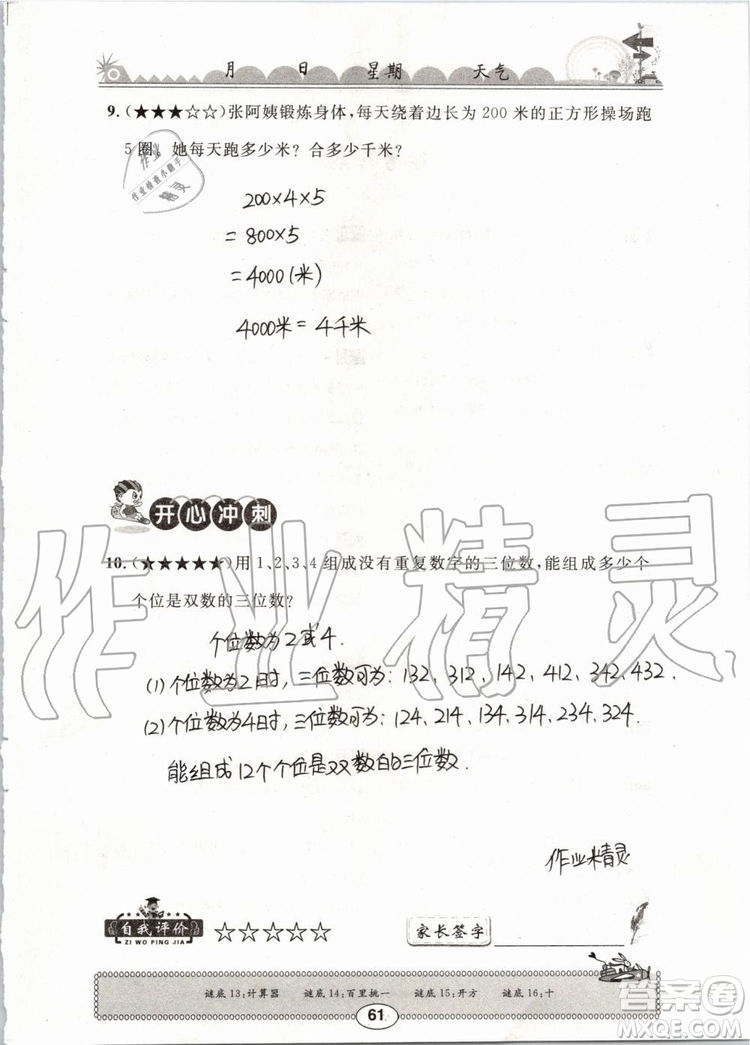 月 日 星期 天气
9. (★★★☆☆)张阿姨锻炼身体,每天绕着边长为 200 米的正方形操场跑
5 圈。她每天跑多少米?合多少千米?
作业
作业检查小助手
精灵
200×4×5
=800×5
=4000(米)
4000米=4千米
开心冲刺
10. (★★★★★)用 1、2、3、4 组成没有重复数字的三位数,能组成多少个
个位是双数的三位数?
作业精灵
个位数为2或4.
(1)个位数为2时,三位数可为:132、312、142、412、342、432.
(2)个位数为4时,三位数可为:124、214、134、314、234、324.
能组成12个个位是双数的三位数.
作业精灵
自我评价 ☆☆☆☆☆ 家长签字
ZI WO PING JIA
谜底 13:计算器 谜底 14:百里挑一 谜底 15:开方 谜底 16:十
61
答案圈
MXQE.COM